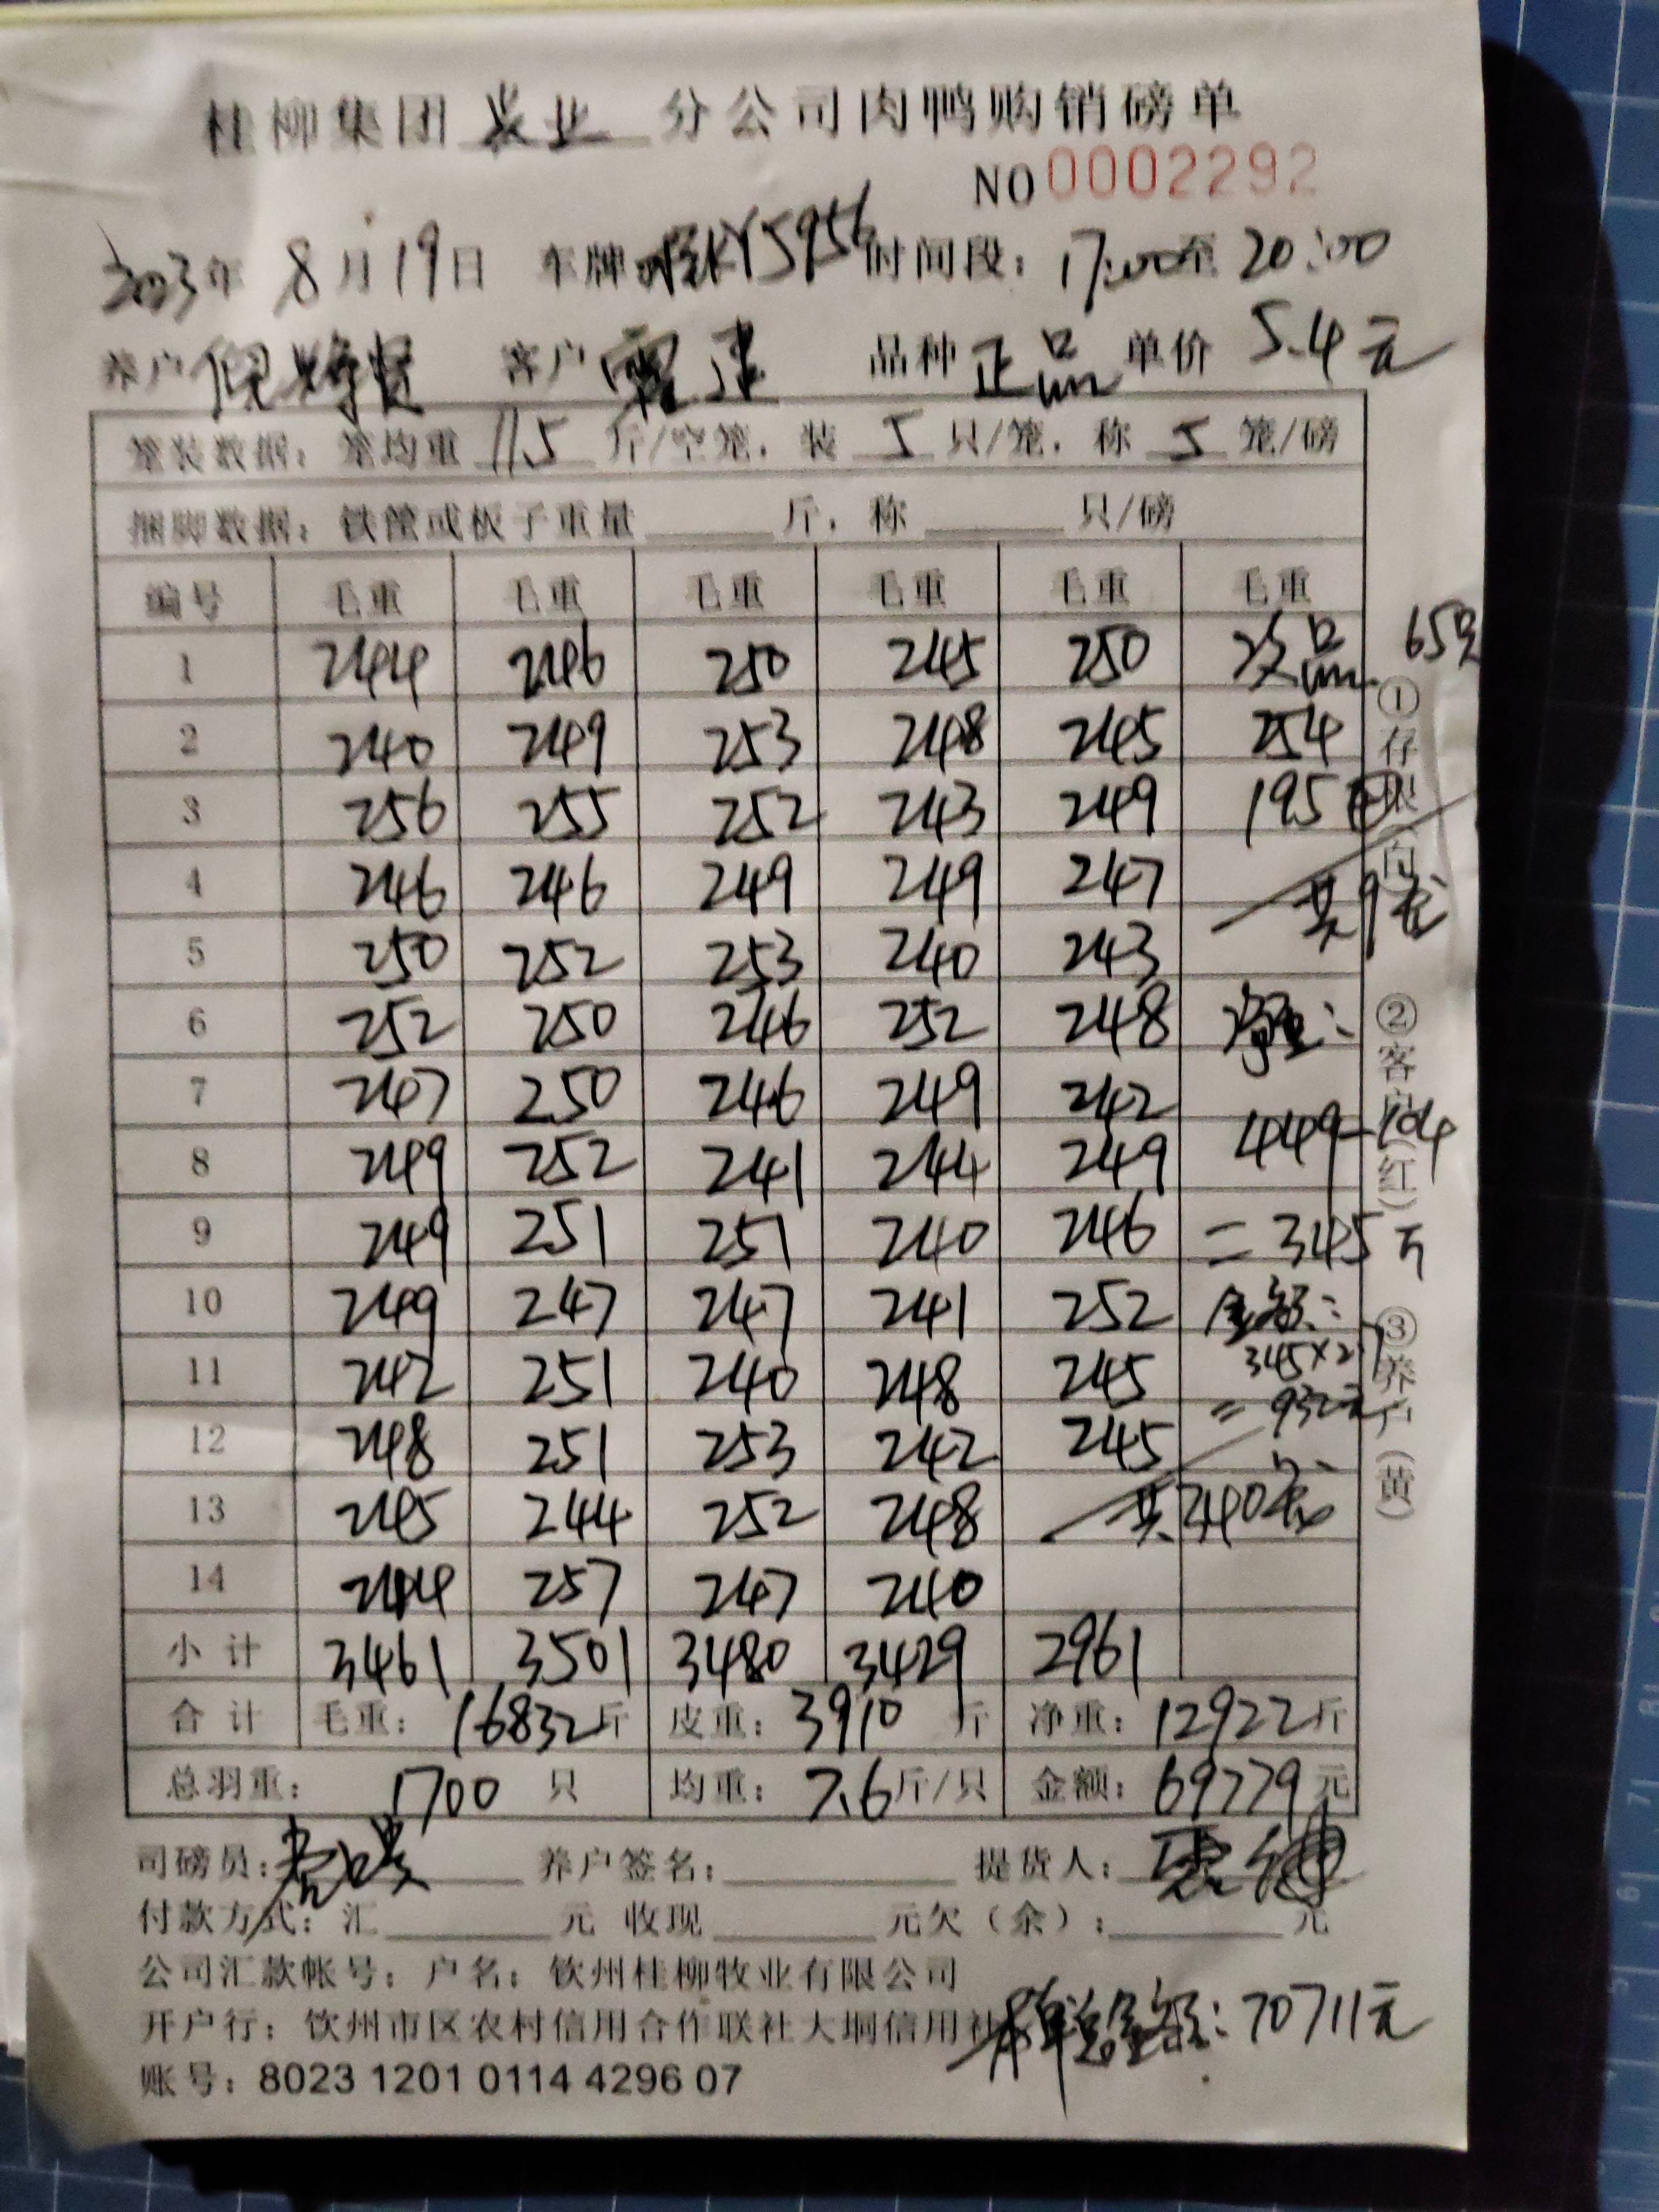 桂柳集团 兴业 分公司肉鸭购销磅单
NO 0002292
2023年 8月19日 车牌 Y5956 时间段：17:00至 20:00
养户 倪 贤 客户 品种 正品 单价 5.4元
笼装数据：笼均重 11.5 斤/空笼，装 5 只/笼，称 5 笼/磅
捆脚数据：铁筐或板子重量 斤，称 只/磅
编号 毛重 毛重 毛重 毛重 毛重 毛重
1 244 246 250 245 250 次品 65只
2 240 249 253 248 245 254
3 256 255 252 243 249 195
4 246 246 249 249 247 共9笼
5 250 252 253 240 243
6 252 250 246 252 248 净重：
7 247 250 246 249 242
8 249 252 241 244 249 449-104
9 249 251 251 240 246 =345斤
10 249 247 247 241 252 金额：
11 242 251 240 248 245 345×2.7
12 248 251 253 242 245 =932元
13 245 244 252 248 共340笼
14 244 257 247 240
小计 3461 3501 3480 3429 2961
合计 毛重：16832斤 皮重：3910 斤 净重：12922斤
总羽重： 1700 只 均重：7.6斤/只 金额：69779元
司磅员： 养户签名： 提货人：
付款方式：汇 元 收现 元欠（余）： 元
公司汇款帐号：户名：钦州桂柳牧业有限公司
开户行：钦州市区农村信用合作联社大垌信用社
单总金额：70711元
账号：8023 1201 0114 4296 07
①存根（白）
②客户（红）
③养户（黄）